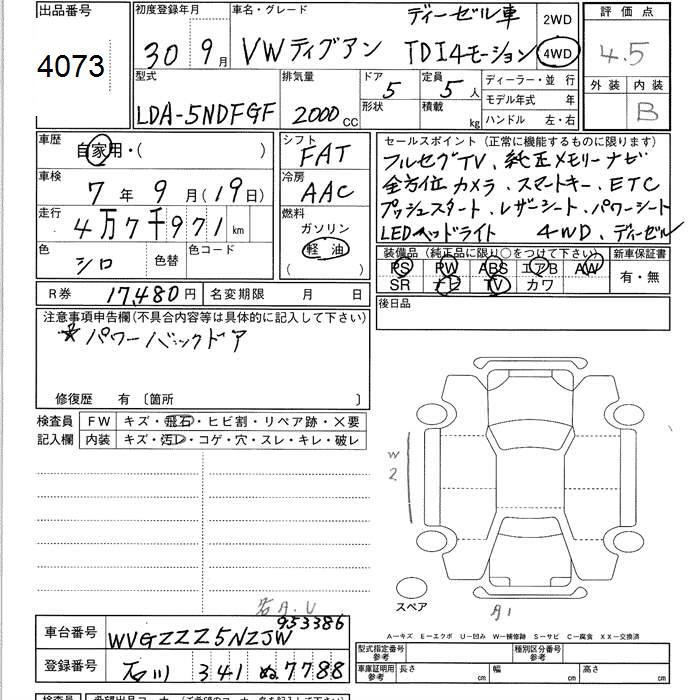 出品番号 4073
初度登録年月 30 9月
車名・グレード ディーゼル車
VWティグアン TDI4モーション
2WD
4WD
評価点 4.5
外装 内装 B
型式 LDA-5NDFGF
排気量 2000 CC
ドア 5 形状
定員 5人 積載 kg
ディーラー・並行
モデル年式 年
ハンドル 左・右
車歴 自家用・( )
車検 7年 9月(19日)
走行 4万7千971 km
色 シロ 色替 色コード
シフト FAT
冷房 AAC
燃料 ガソリン
軽油
( )
セールスポイント (正常に機能するものに限ります)
フルセグTV、純正メモリーナビ
全方位カメラ、スマートキー、ETC
プッシュスタート、レザーシート、パワーシート
LEDヘッドライト 4WD、ディーゼル
装備品 (純正品に限り○をつけて下さい) 新車保証書
PS PW ABS エアB AW 有・無
SR ナビ TV カワ
R券 17,480円 名変期限 月 日
後日品
注意事項申告欄(不具合内容等は具体的に記入して下さい)
*パワーバックドア
修復歴 有 〔箇所 〕
検査員 FW キズ・飛石・ヒビ割・リペア跡・×要
記入欄 内装 キズ・汚レ・コゲ・穴・スレ・キレ・破レ
W
2
スペア
A1
A.U
A―キズ E―エクボ U―凹み W―補修跡 S―サビ C―腐食 XX―交換済
車台番号 WVGZZZ5NZJW953386
登録番号 石川 341 ぬ 7788
型式指定番号 参考
種別区分番号 参考
車庫証明用 参考 長さ cm 幅 cm 高さ cm
検査員 希望出品コーナー